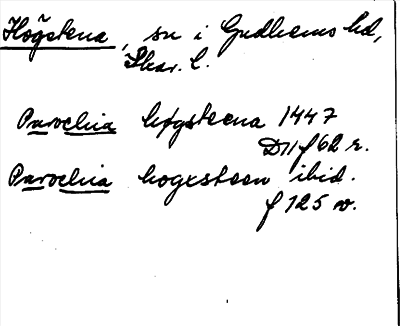 Högstena, sn i Gudhems hd,
Skar. l.
Parochia høgsteena 1447
D11 f 62 r.
Parochia hogxsteen ibid.
f 125 v.